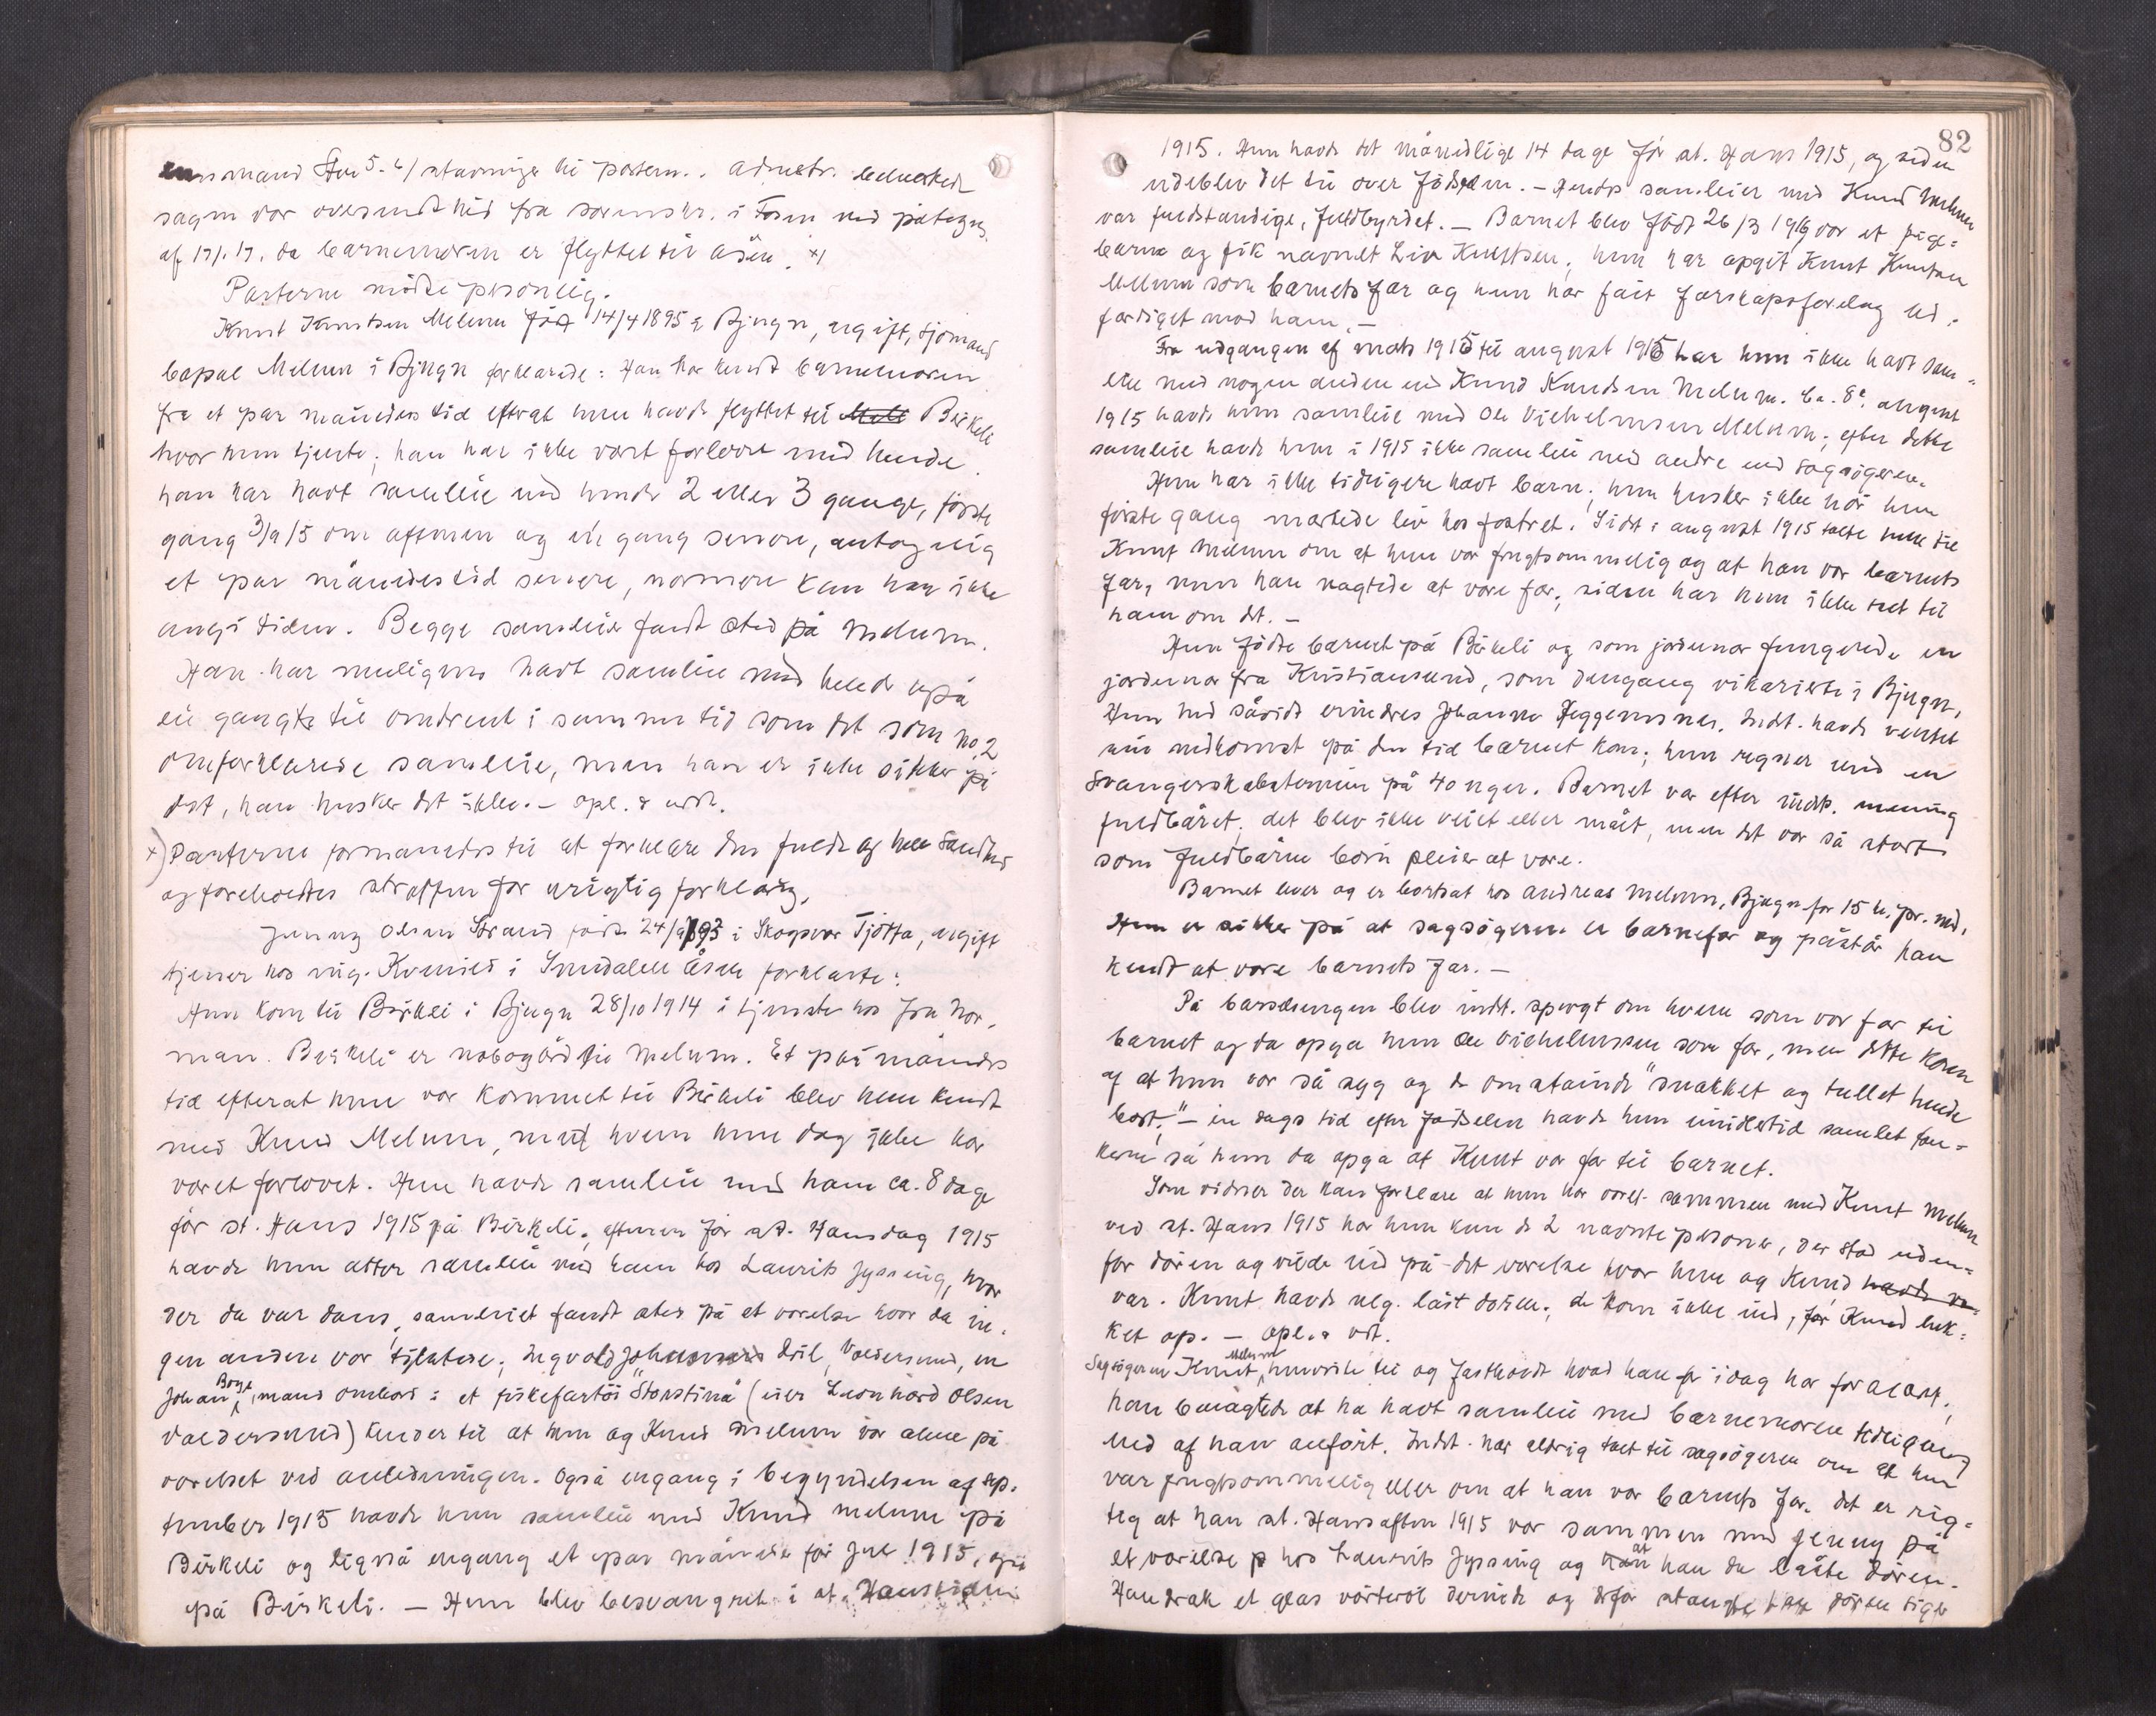 ensmand stevninger til partern. Adnstr. bemerket
sagen var oversendt hid fra sorenskr. i Fosen med påtegn.
af 17/1. 17. da barnemoren er flyttet til Åsen. x)
Parterne mødte personlig.
Knut Knutsen Melum född 14/4 1895 i Bjugn, ugift, sjømand
bopæl Melum i Bjugn forklarede: Han har kendt barnemoren
fra et par måneders tid efterat hun havde flyttet til Birkeli
hvor hun tjente; han har ikke vært forlovet med hende.
han har havt samleie med hende 2 eller 3 gange, første
gang 3/9 15 om aftenen og én gang senere, antagelig
et par måneders tid senere, nærmere kan han ikke
angi tiden. Begge samleier fandt sted på Melum.
Han har muligens havt samleie med hende også
en gang til omtrent i samme tid som det som no. 2
omforklarede samleie, men han er ikke sikker på
det, han husker det ikke. – opl. & vedt.
x) Parterne formanedes til at forklare den fulde og hele sandhed
og foreholdtes straffen for urigtig forklaring.
Jenny Olsen Strand født 24/9 1893 i Skogsvær Tjøtta, ugift
tjener hos mig. Kvernsied i Inndalen Åsen forklarte:
Hun kom til Birkeli i Bjugn 28/10 1914 i tjeneste hos fru Nor-
man. Birkeli er nabogård til Melum. Et par måneders
tid efterat hun var kommet til Birkeli blev hun kendt
med Knud Melum, med hvem hun dog ikke har
været forlovet. Hun havde samleie med ham ca. 8 dage
før st. Hans 1915 på Birkeli; aftenen før st. Hansdag 1915
havde hun atter samleie med ham hos Laurits Jyssing, hvor
der da var dans, samleiet fandt sted på et værelse hvor da in-
gen andre var tilstede; Ingvald Johansens Dril, Valdersund, en
Johan Borge, mand ombord i et fiskefartøi "Storstina" (eier Leonhard Olsen
Valdersund) kender til at hun og Knud Melum var alene på
værelset ved anledningen. Også engang i begyndelsen af sep-
tember 1915 havde hun samleie med Knud Melum på
Birkeli og ligeså engang et par måneder før jul 1915, også
på Birkeli. – Hun blev besvangret i st. Hanstiden
82
1915. Hun havde det månedlige 14 dage før st. Hans 1915, og siden
udeblev det til over fødselen. – Hendes samleier med Knud Melum
var fuldstændige, fuldbyrdet. – Barnet blev født 26/3 1916 var et pige-
barn og fik navnet Liv Knutsen; hun har opgit Knut Knutsen
Melum som barnets far og hun har fåit farskapsforelæg ud-
færdiget mod ham. –
Fra udgangen af mats 1915 til august 1915 har hun ikke havt sam-
leie med nogen anden end Knud Knudsen Melum. Ca. 8de august
1915 havde hun samleie med Ole Vichelmsen Melum; efter dette
samleie havde hun i 1915 ikke samleie med andre end sagsøgeren.
Hun har ikke tidligere havt barn; hun husker ikke når hun
første gang mærkede liv hos fostret. Sidst i august 1915 talte hun til
Knut Melum om at hun var frugtsommelig og at han var barnets
far, men han nægtede at være far; siden har hun ikke talt til
ham om det. –
Hun fødte barnet på Birkeli og som jordmor fungerede en
jordmor fra Kristiansund, som dengang vikarierte i Bjugn,
Hun hed såvidt erindres Johanne Heggemsnes. Indst. havde ventet
sin nedkomst på den tid barnet kom; hun regner med en
svangerskabstermin på 40 uger. Barnet var efter indst. mening
fuldbåret; det blev ikke veiet eller målt, men det var så stort
som fuldbårne børn pleier at være.
Barnet lever og er bortsat hos Andreas Melum, Bjugn for 15 kr. pr. md.
Hun er sikker på at sagsøgeren er barnefar og påstår han
kendt at være barnets far. –
På barselsengen blev indst. spurgt om hvem som var far til
barnet og da opga hun Ole Vichelmsen som far, men dette kom
af at hun var så syg og de omstående "snakket og tullet hende
bort." – en dags tid efter fødselen havde hun imidlertid samlet tan-
kerne så hun da opga at Knut var far til barnet.
Som vidner der kan forklare at hun har været sammen med Knut Melum
ved st. Hans 1915 har hun kun de 2 nævnte personer, der stod uden-
for døren og vilde ind på det værelse hvor hun og Knud havde væ-
var. Knut havde nlg. låst døren; de kom ikke ind, før Knud luk-
ket op. – opl. & vdt.
Sagsøgeren Knut Melum, henviste til og fastholdt hvad han før idag har forklart;
han benægtede at ha havt samleie med barnemoren tidligere
end af han anført. Indst. har aldrig talt til sagsøgeren om at hun
var frugtsommelig eller om at han var barnets far. Det er rig-
tig at han st. Hansaften 1915 var sammen med Jenny på
et værelse hos Laurits Jyssing og at han da låste døren.
Han drak et glas vørterøl derinde og derfor stengte han døren siger